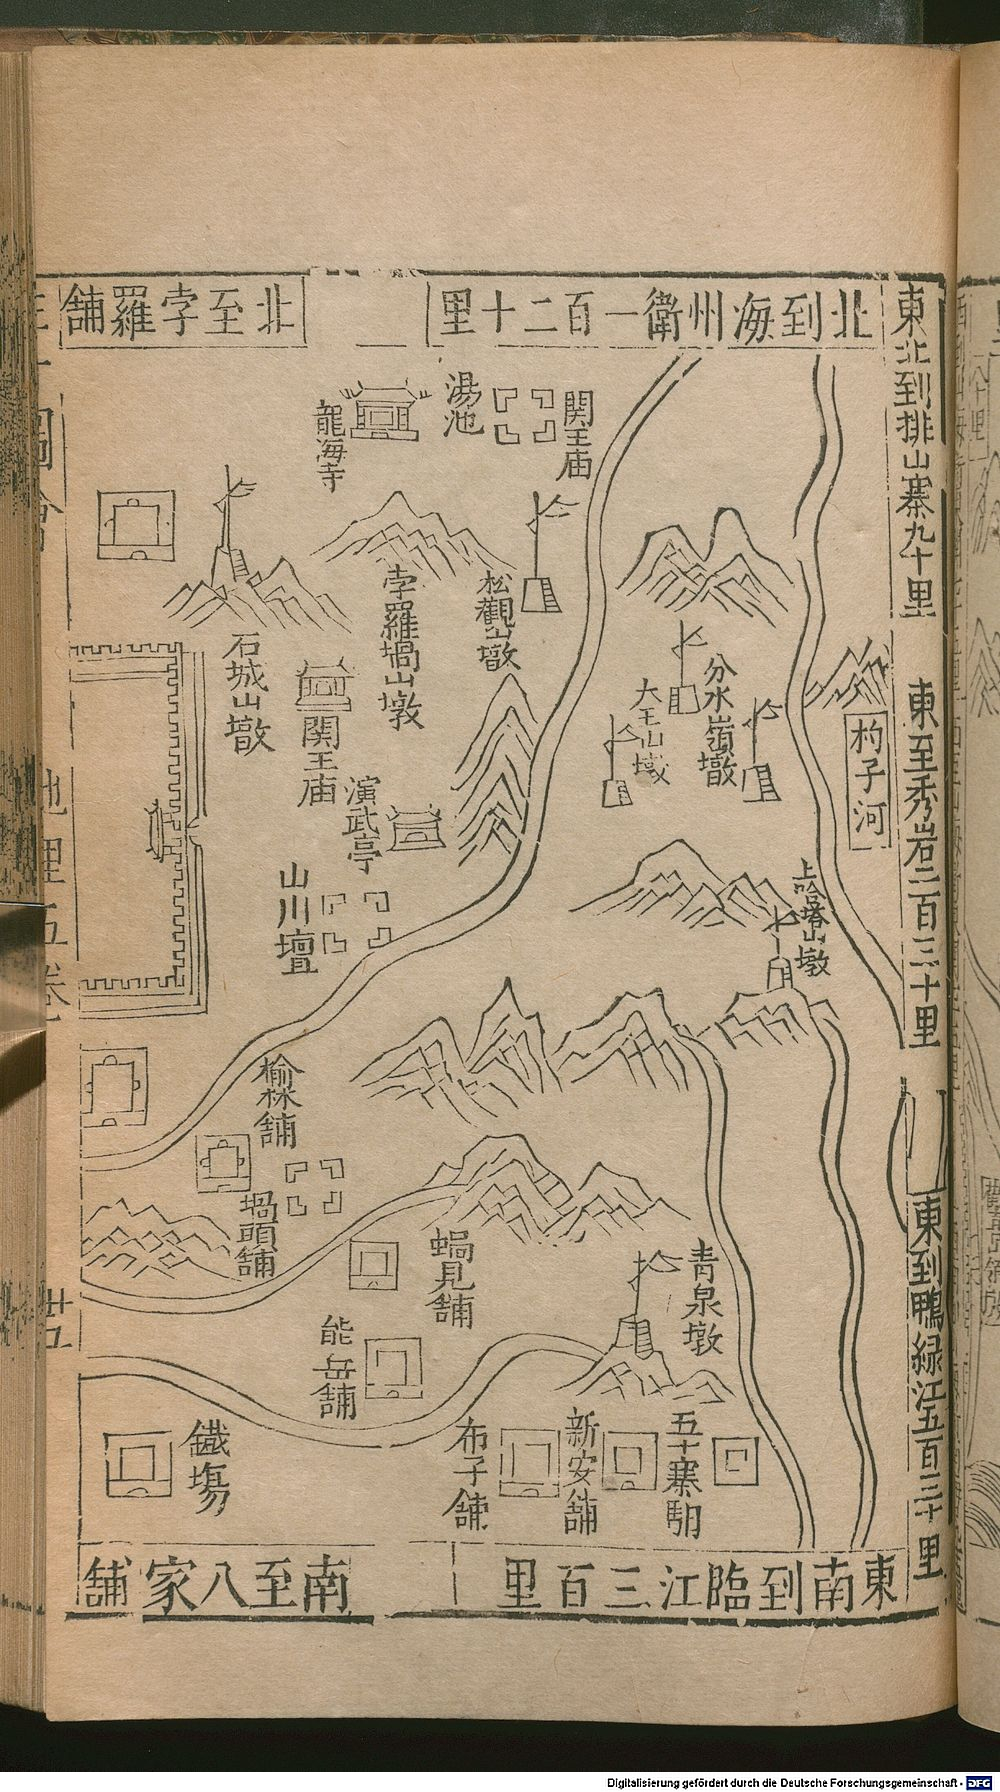 東北到排山寨九十里
東至秀岩二百三十里
東到鴨緑江五百三十里
北到海州衛一百二十里
北至孛羅舖
関王庙
湯池
龍海寺
松觀山墩
孛羅堝山墩
石城山墩
関王庙
演武亭
山川壇
分水嶺墩
大王山墩
杓子河
上哈塔山墩
榆林舖
堝頭舖
蝸見舖
熊岳舖
青泉墩
五十寨駅
新安舖
布子舖
鐵塲
東南到臨江三百里
南至八家舖
地理五卷
廿五
Digitalisierung gefördert durch die Deutsche Forschungsgemeinschaft - DFG